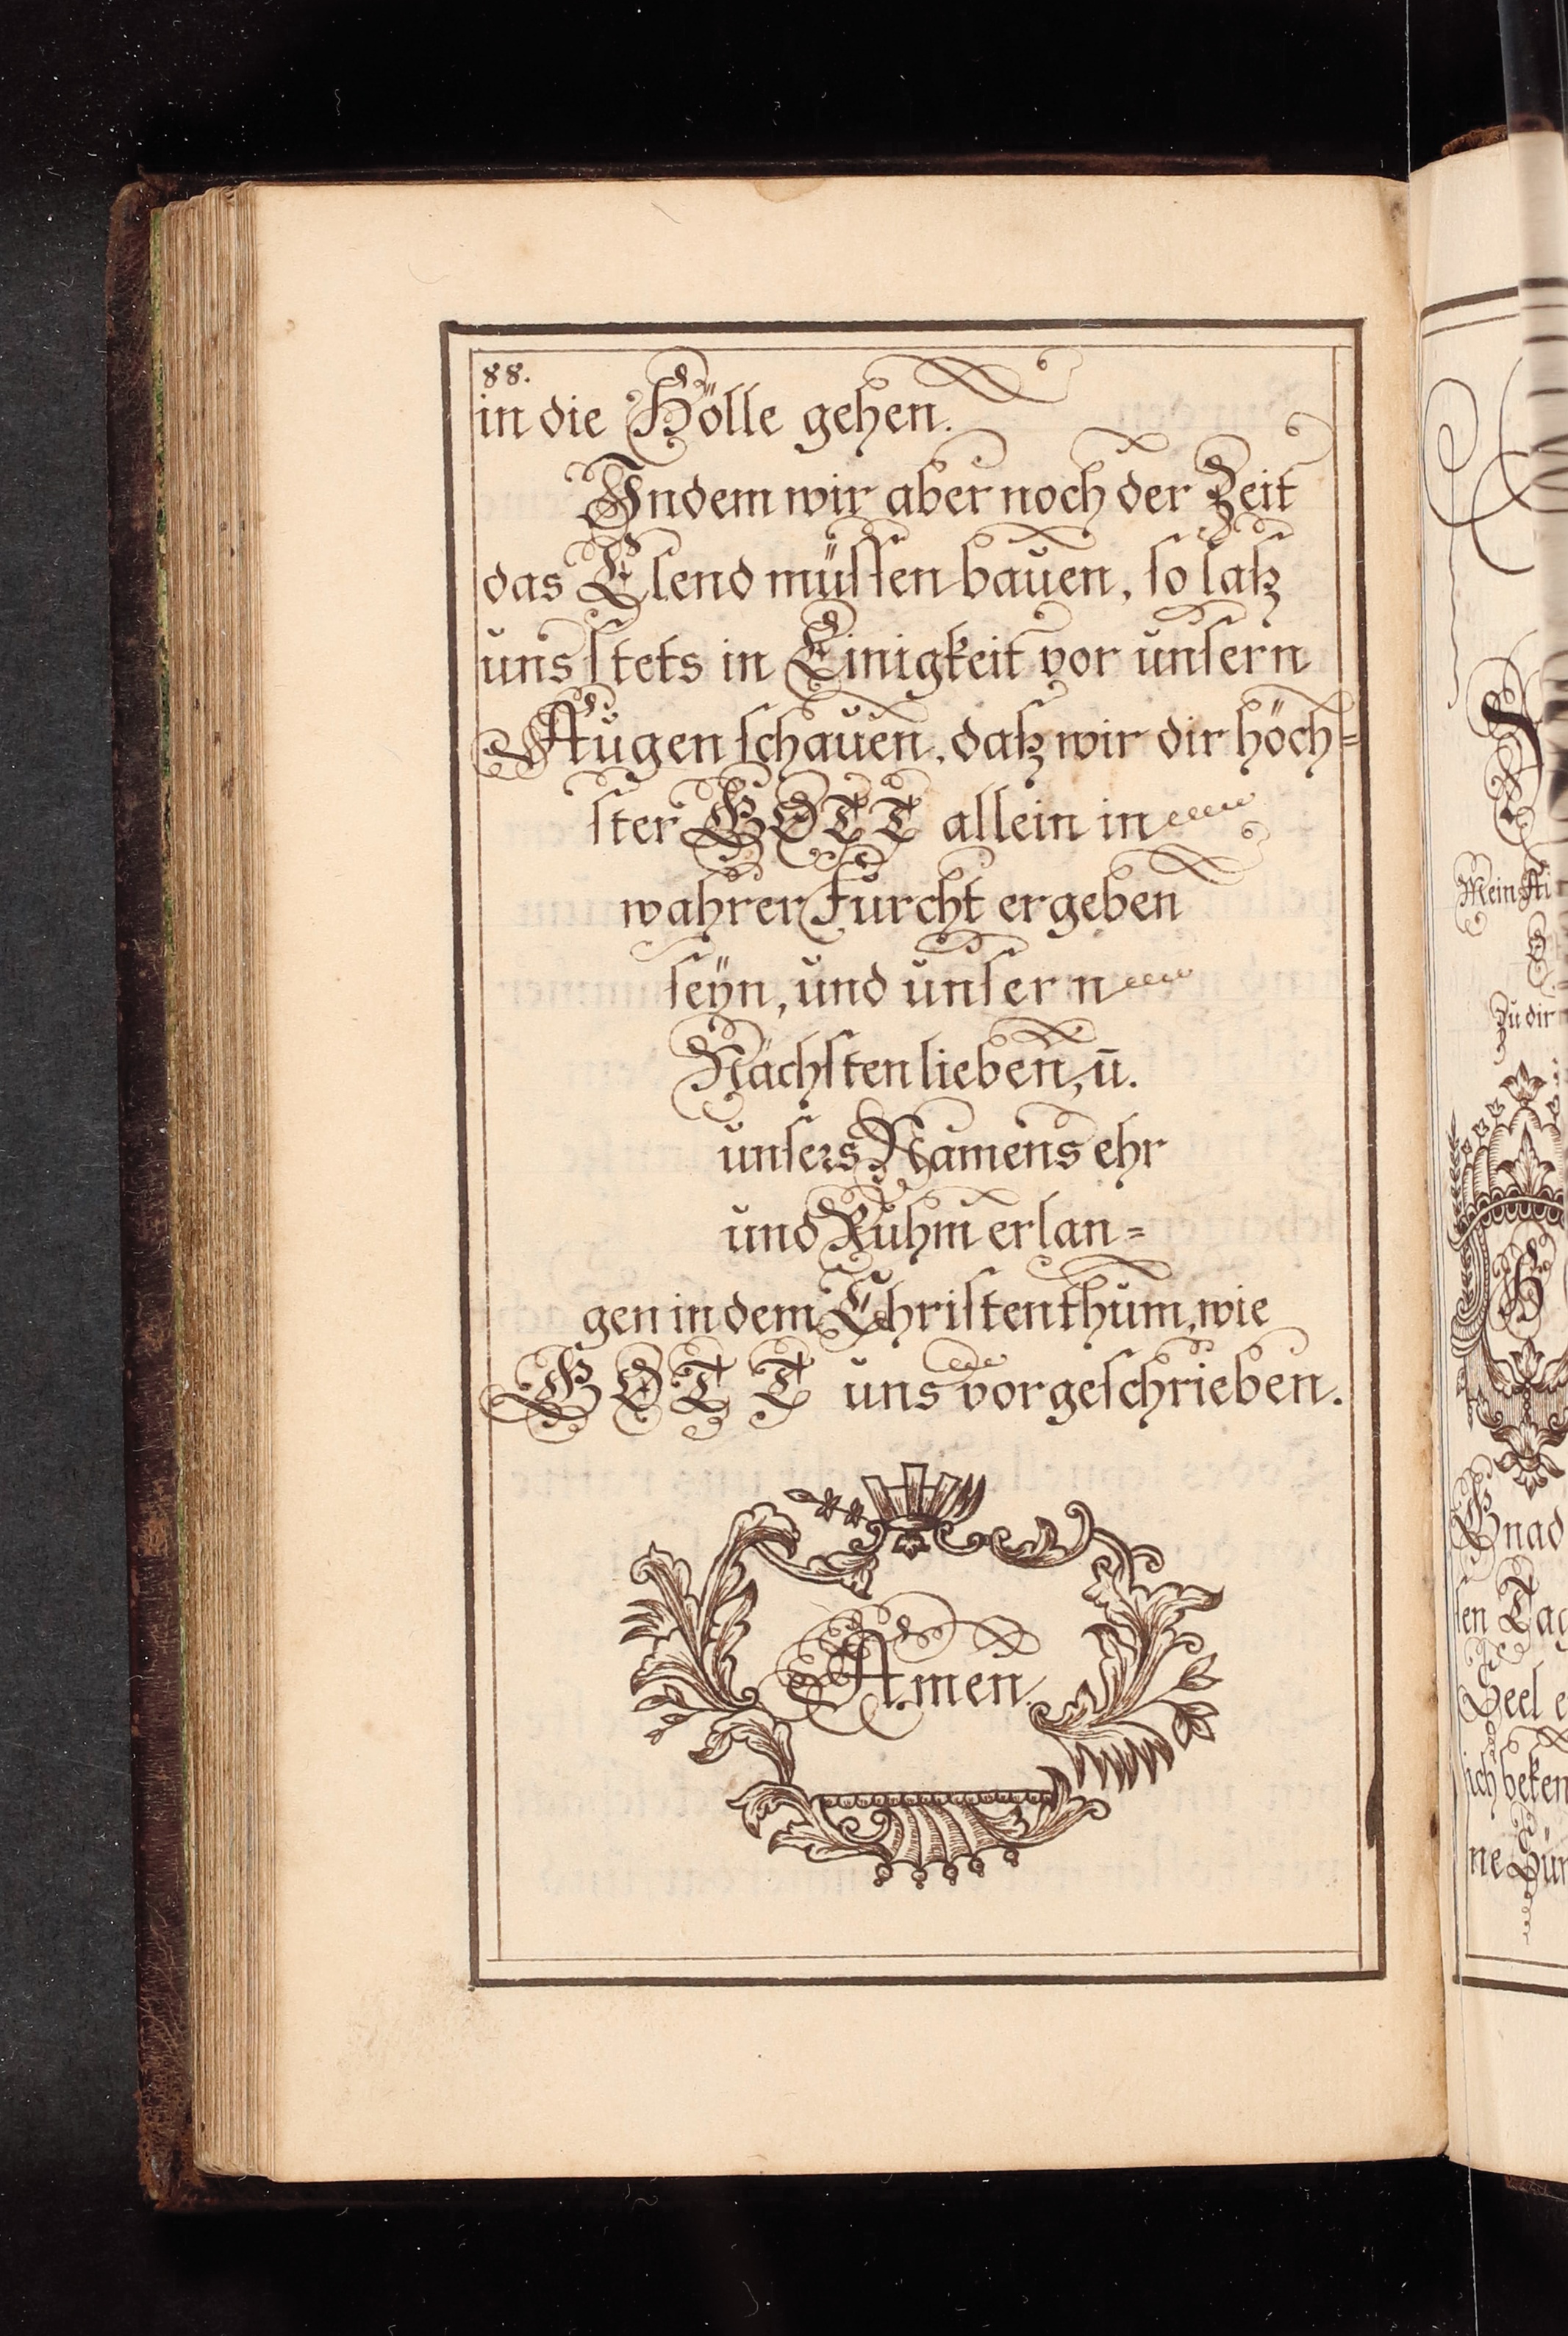 88.
in die Hölle gehen.
Indem wir aber noch der Zeit
das Elend müssen bauen, so laß
uns stets in Einigkeit vor unsern
Augen schauen, daß wir dir höch=
ster GOTT allein in
wahrer Furcht ergeben
seÿn, und unsern
Nächsten lieben, ū.
unsers Namens ehr
und Ruhm erlan=
gen in dem Christenthum, wie
GOTT uns vorgeschrieben.
Amen.
Mein
Zu dir
Gnad
sen Tag
Seel e
ich beken
ne Sün